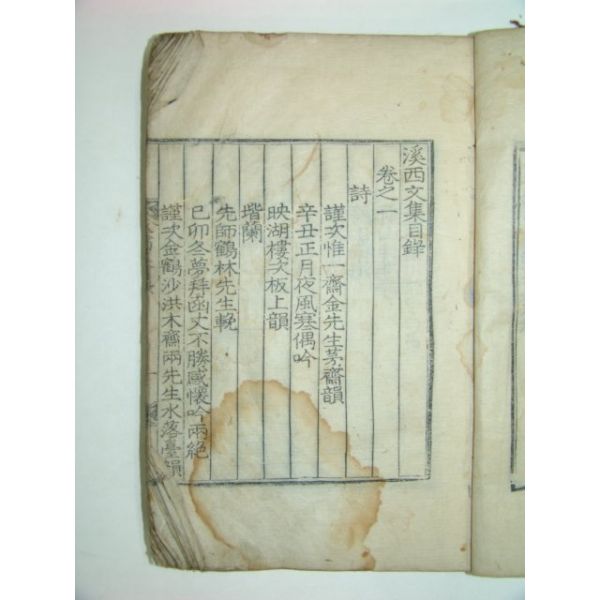 溪西文集目錄
卷之一
詩
謹次惟一齋金先生茅齋韻
辛丑正月夜風寒偶吟
映湖樓次板上韻
堦蘭
先師鶴林先生輓
己卯冬夢拜函丈不勝感懷吟兩絕
謹次金鶴沙洪木齋兩先生水落臺韻